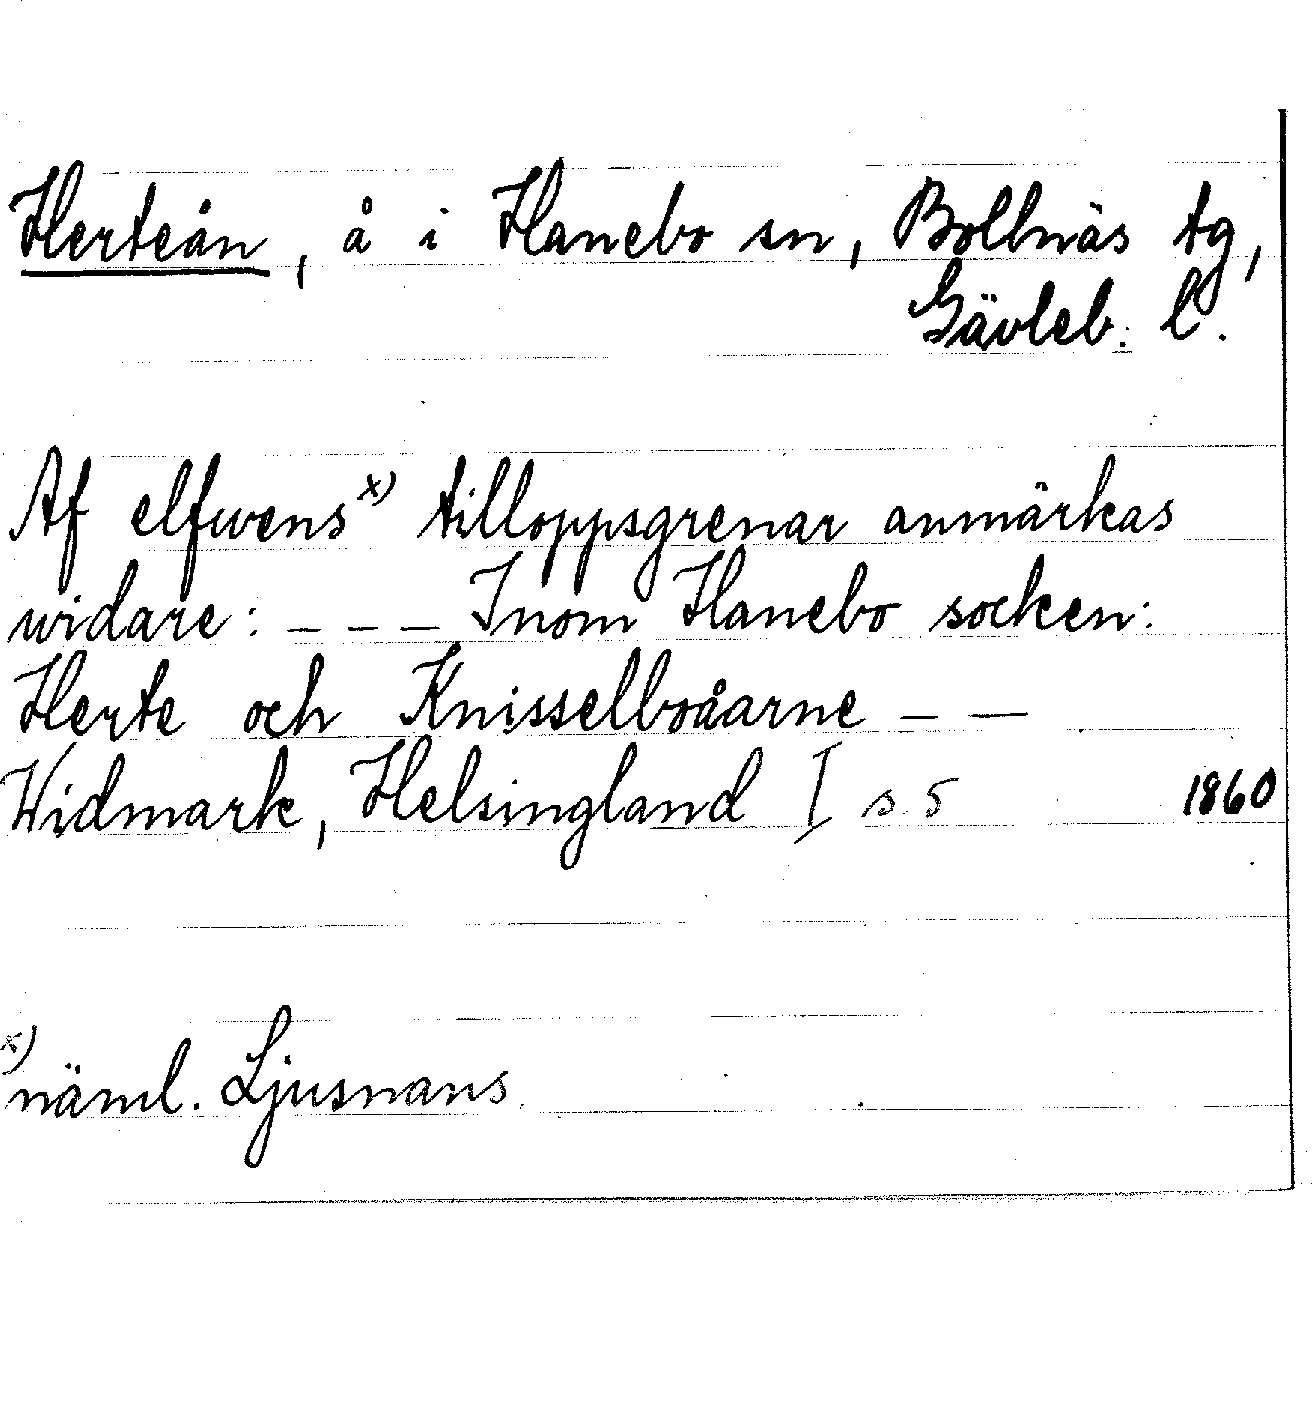 Herteån, å i Hanebo sn, Bollnäs tg,
Gävleb. l.
Af elfwens x) tilloppsgrenar anmärkas
widare: _ _ _ Inom Hanebo socken:
Herte och Knisselboåarne _ _
Widmark, Helsingland I s 5 1860
x)
näml. Ljusnans.